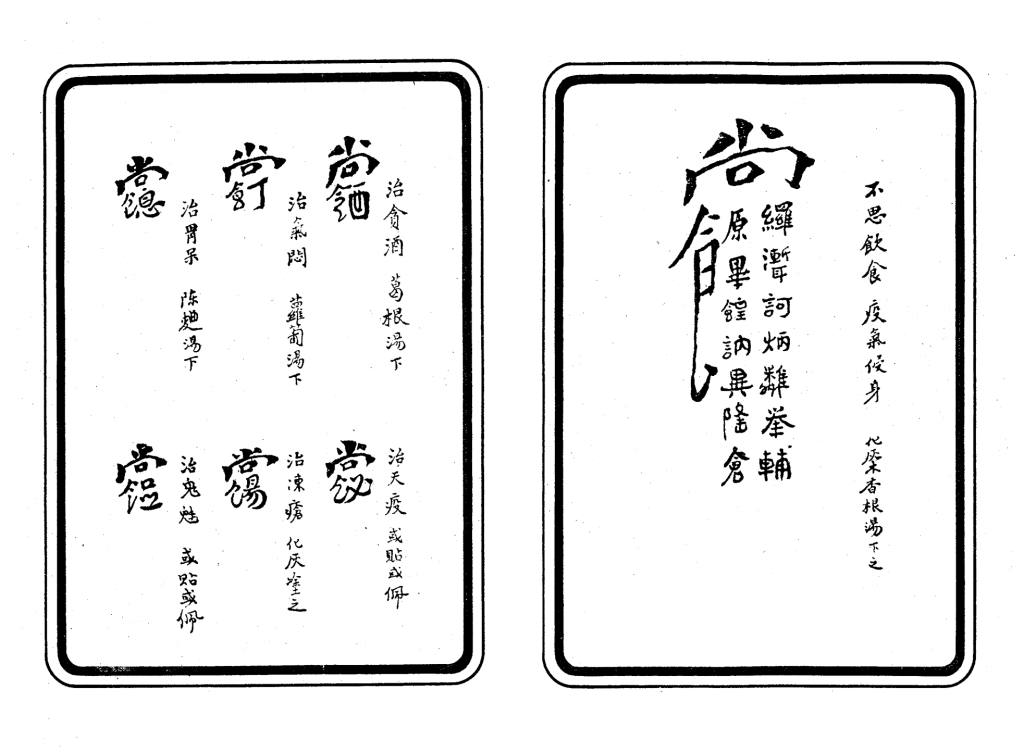 不思飲食 疫氣侵身 化 香根湯下之
尚
食
羅漸訶炳 舉輔
原畢 訥異隆倉
治貪酒 葛根湯下
治氣悶 蘿蔔湯下
治胃呆 陈麯湯下
治天疫 或貼或佩
治凍瘡 化灰塗之
治鬼魅 或貼或佩